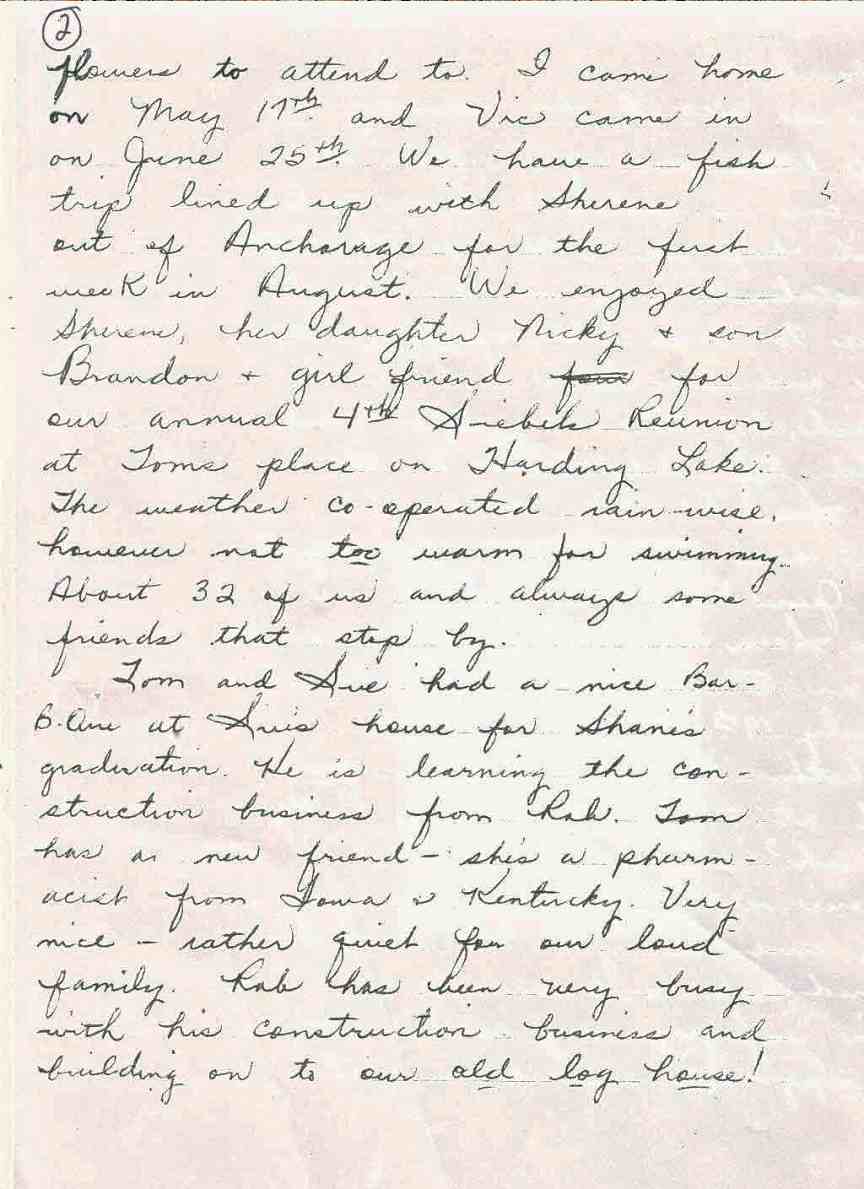 2
flowers to attend to. I came home
on May 17th and Vic came in
on June 25th. We have a fish
trip lined up with Sherene
out of Anchorage for the first
week in August. We enjoyed
Sherene, her daughter Nicky + son
Brandon + girl friend for
our annual 4th Siebels Reunion
at Toms place on Harding Lake.
The weather co-operated rain-wise,
however not too warm for swimming.
About 32 of us and always some
friends that stop by.
Tom and Sue had a nice Bar-
B-Que at Sue's house for Shane's
graduation. He is learning the con-
struction business from Rob. Tom
has a new friend - she's a pharm-
acist from Iowa & Kentucky. Very
nice - rather quiet for our loud
family. Rob has been very busy
with his construction business and
building on to our old log house!